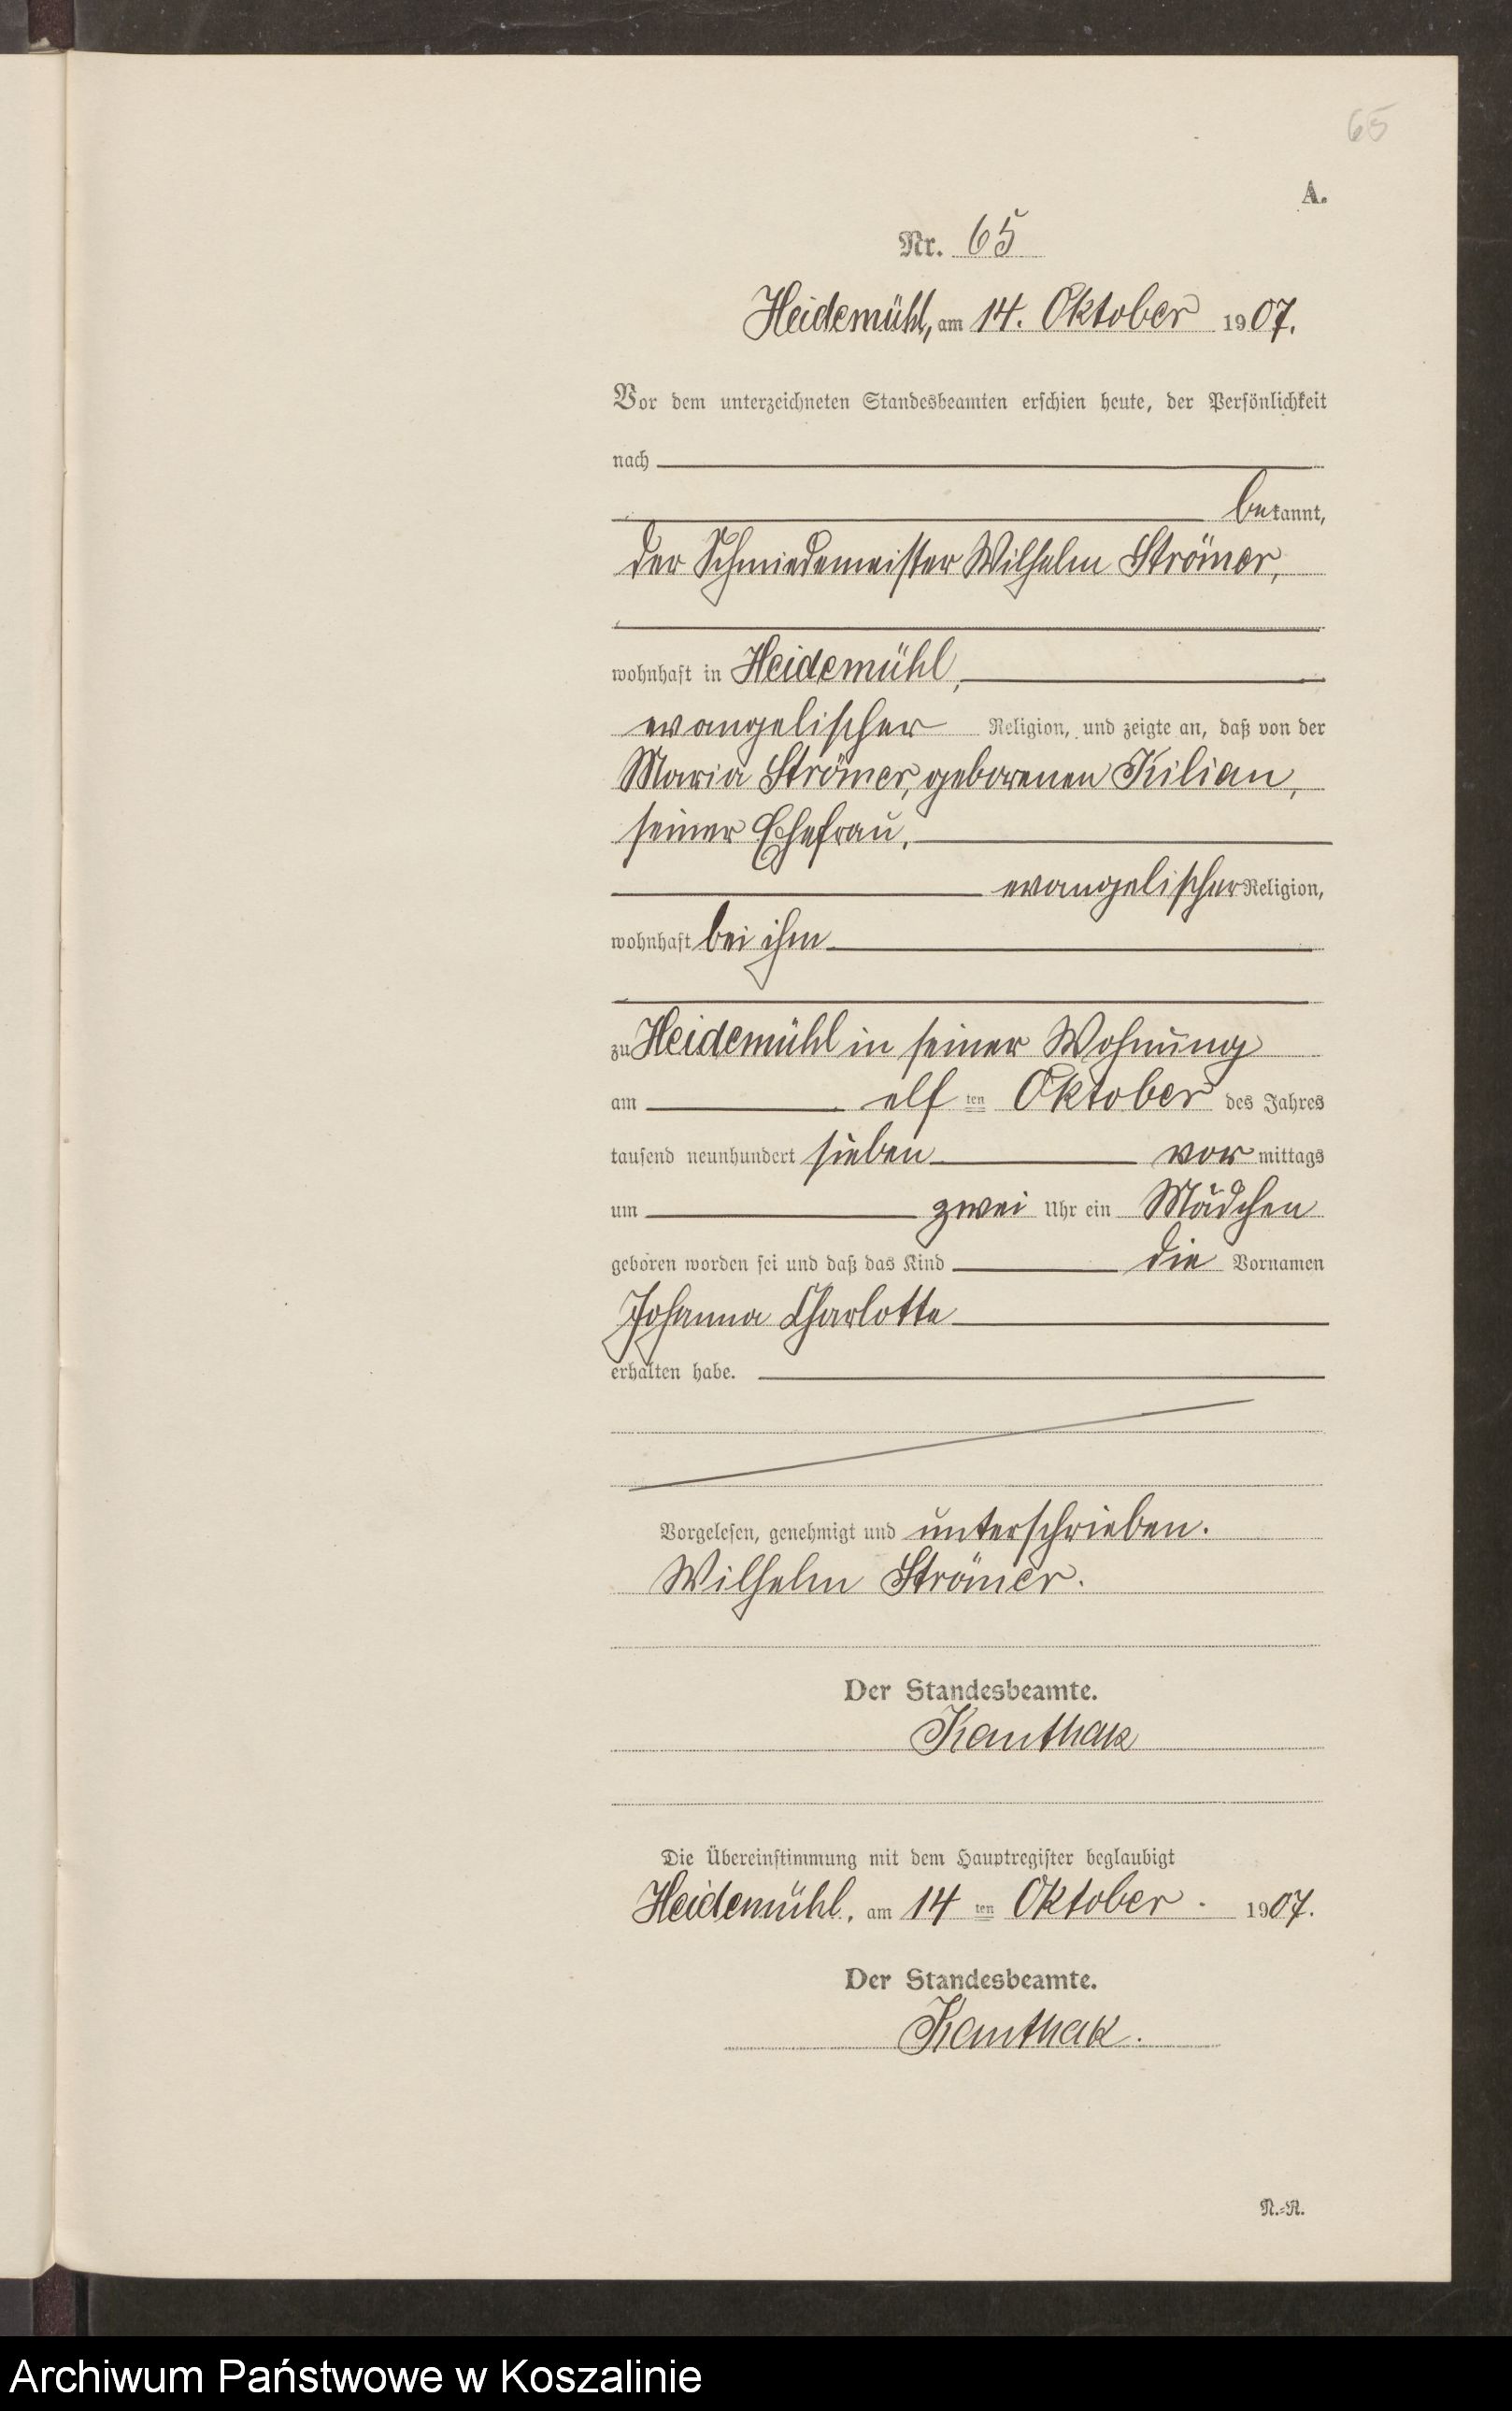 65
A.
Nr. 65
Heidemühl, am 14. Oktober 1907.
Vor dem unterzeichneten Standesbeamten erschien heute, der Persönlichkeit
nach
bekannt,
der Schmiedemeister Wilhelm Strömer,
wohnhaft in Heidemühl,
evangelischer Religion, und zeigte an, daß von der
Maria Strömer, geborenen Kilian,
seiner Ehefrau,
evangelischer Religion,
wohnhaft bei ihm
zu Heidemühl in seiner Wohnung
am elf ten Oktober des Jahres
tausend neunhundert sieben vor mittags
um zwei Uhr ein Mädchen
geboren worden sei und daß das Kind die Vornamen
Johanna Charlotte
erhalten habe.
Vorgelesen, genehmigt und unterschrieben.
Wilhelm Strömer.
Der Standesbeamte.
Kanthak
Die Übereinstimmung mit dem Hauptregister beglaubigt
Heidemühl, am 14 ten Oktober. 1907.
Der Standesbeamte.
Kanthak.
N.-R.
Archiwum Państwowe w Koszalinie